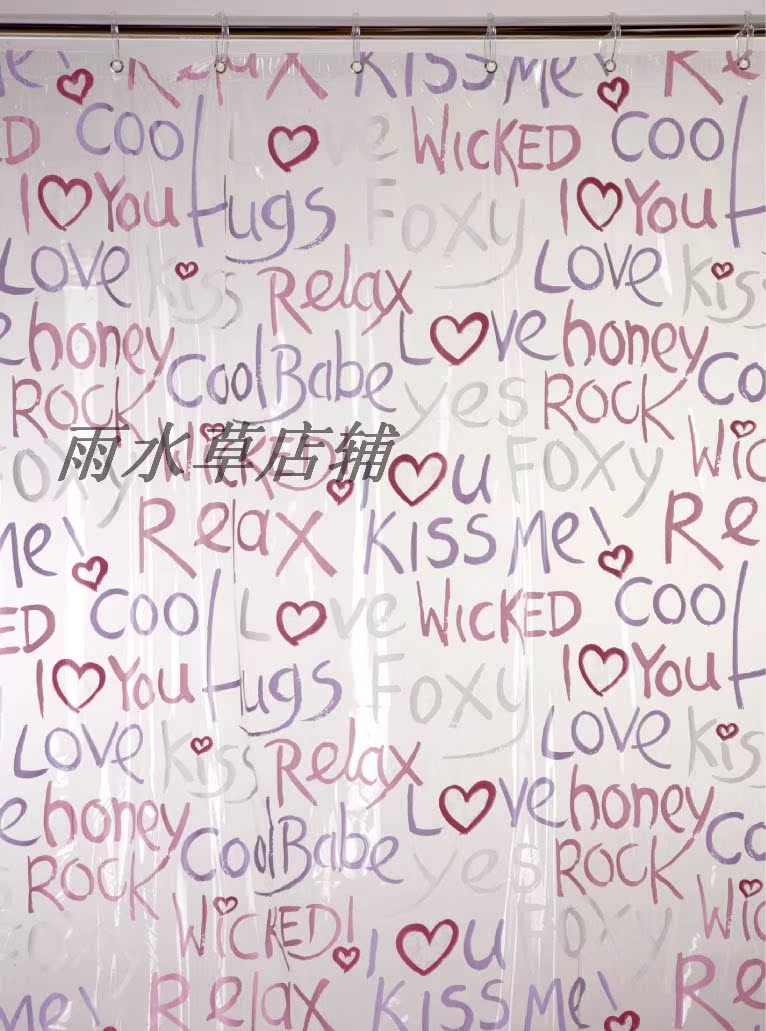 Me! Relax KISS Me! Re
ED Cool Love WICKED Cool
I You Hugs Foxy I You
Love kiss Relax Love kiss
honey Cool Babe Love honey
ROCK yes ROCK Co
Foxy WICKED! I u Foxy Wic
雨水草店铺
Me! Relax KISS Me! Re
ED Cool Love WICKED Cool
I You Hugs Foxy I You
Love kiss Relax Love kiss
e honey Cool Babe Love honey Co
ROCK yes ROCK
WICKED! I u Foxy Wic
Me! Relax KISS Me! Re